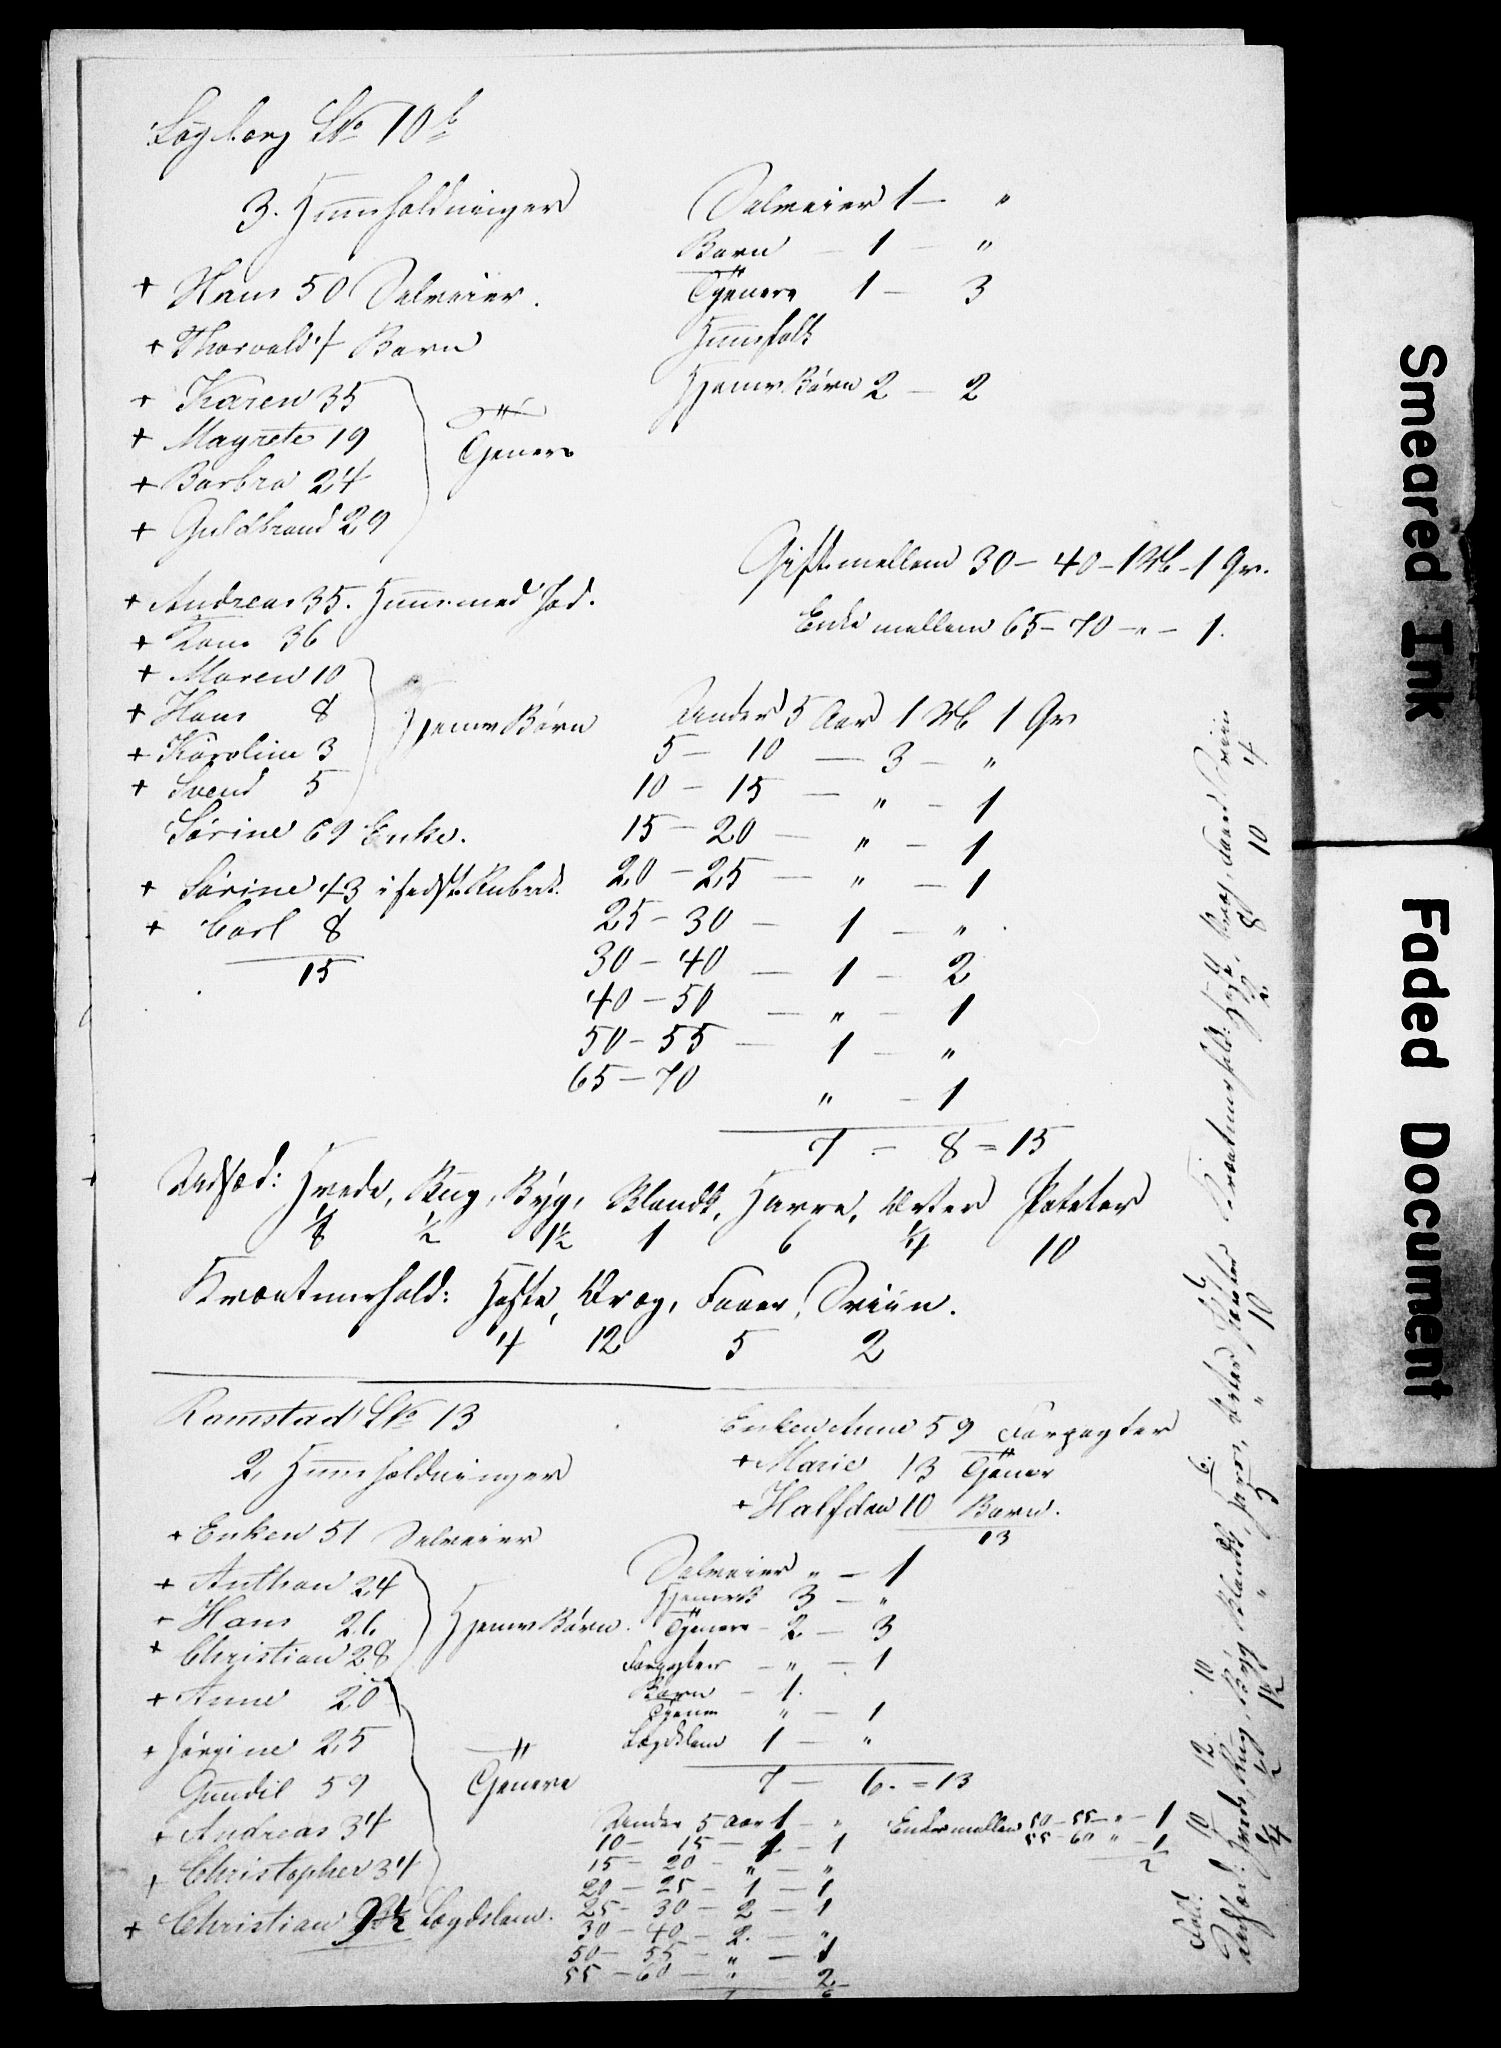 Søgberg LNo 10 b
3. Huusholdninger
+ Hans 50 Selveier.
+ Thorvald 4 Barn
+ Karen 35
+ Magrete 19
+ Barbra 24
+ Guldbrand 29
Tjenere
+ Andreas 35. Huusmed Jod.
+ Kone 36
+ Maren 10
+ Hans 8
+ Karoline 3
+ Svend 5
Hjemv. Børn
Sørine 69 Enke.
+ Sørine 43
+ Carl 8
15
Selveier 1 — "
Barn — 1 — "
Tjenere 1 — 3
Huusfolk
Hjemv. Børn 2 — 2
Gift mellem 30 — 40 — 1 M — 1 Qv.
Enke mellem 65 — 70 — " — 1.
Under 5 Aar 1 M 1 Qv
5 — 10 — 3 — "
10 — 15 — " — 1
15 — 20 — " — 1
20 — 25 — " — 1
25 — 30 — 1 — "
30 — 40 — 1 — 2
40 — 50 — " — 1
50 — 55 — 1 — "
65 — 70 " — 1
7 — 8 = 15
Udsæd: Hvede, Rug, Byg, Blandk, Havre, Erter Poteter
1/8 1/2 1 1/2 1 6 1/4 10
Kreaturhold: Heste, Qvæg, Faaer, Sviin.
4 12 5 2
Ramstad LNo 13
2, Huusholdninger
+ Enken 51 Selveier
+ Anthon 24
+ Hans 26
+ Christian 28
Hjemv Børn.
+ Anne 20
+ Jørgine 25
Gundil 59
+ Andreas 34
+ Christopher 34
Tjenere
+ Christian Lægdslem.
Enken Anne 59 Forpagter
+ Marie 13 Tjener
+ Halfdan 10 Barn.
13
Selveier " — 1
Hjemv B 3 — "
Tjenere — 2 — 3
Forpagter — " — 1
Barn — 1.
Tjener " — 1
Lægdslem 1 — "
7 — 6. = 13
Under 5 Aar 1 — "
10 — 15 — 1 — 1
15 — 20 — " — "
20 — 25 — 1 — 1
25 — 30 — 2 — 1
30 — 40 — 2. — "
50 — 55 — " — 1
55 — 60 — " 2
Enker mellem 50 — 55 — " — 1
55 — 60 " — 1
2
Udsæd: Hvede, Rug, Byg, Blandk, Havre, Erter, Poteter
Kreaturhold: Heste, Qvæg, Faaer Sviin
2 8 10 4
Smeared Ink
Faded Document